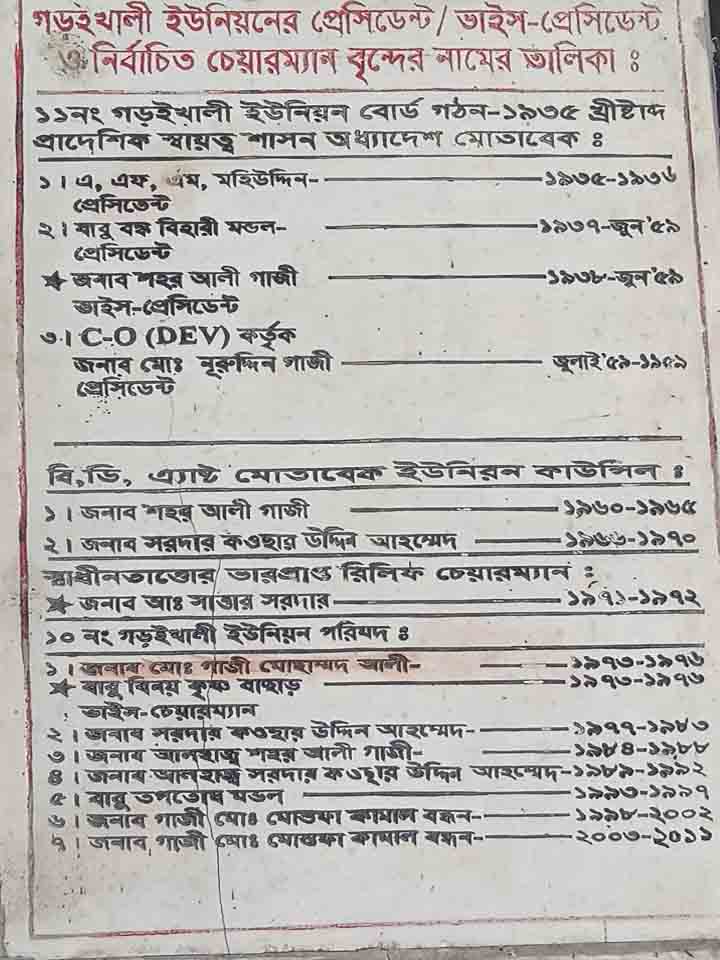 গড়ইখালী ইউনিয়নের প্রেসিডেন্ট/ ভাইস-প্রেসিডেন্ট
ও নির্বাচিত চেয়ারম্যান বৃন্দের নামের তালিকা ঃ
১১নং গড়ইখালী ইউনিয়ন বোর্ড গঠন-১৯৩৫ খ্রীষ্টাব্দ
প্রাদেশিক স্বায়ত্ব শাসন অধ্যাদেশ মোতাবেক ঃ
১। এ, এফ, এম, মহিউদ্দিন- ১৯৩৫-১৯৩৬
প্রেসিডেন্ট
২। বাবু বঙ্ক বিহারী মন্ডল- ১৯৩৭-জুন'৫৯
প্রেসিডেন্ট
★ জনাব শহর আলী গাজী ১৯৩৮-জুন'৫৯
ভাইস-প্রেসিডেন্ট
৩। C-O (DEV) কর্তৃক
জনাব মোঃ নূরুদ্দিন গাজী জুলাই'৫৯-১৯৫৯
প্রেসিডেন্ট
বি,ডি, এ্যাক্ট মোতাবেক ইউনিয়ন কাউন্সিল ঃ
১। জনাব শহর আলী গাজী ১৯৬০-১৯৬৫
২। জনাব সরদার কওছার উদ্দিন আহম্মেদ ১৯৬৬-১৯৭০
স্বাধীনতাত্তোর ভারপ্রাপ্ত রিলিফ চেয়ারম্যান ঃ
★ জনাব আঃ সাত্তার সরদার ১৯৭১-১৯৭২
১০ নং গড়ইখালী ইউনিয়ন পরিষদ ঃ
১। জনাব মোঃ গাজী মোহাম্মদ আলী- ১৯৭৩-১৯৭৬
★ বাবু বিনয় কৃষ্ণ বাছাড় ১৯৭৩-১৯৭৬
ভাইস-চেয়ারম্যান
২। জনাব সরদার কওছার উদ্দিন আহম্মেদ- ১৯৭৭-১৯৮৩
৩। জনাব আলহাজ্ব শহর আলী গাজী- ১৯৮৪-১৯৮৮
৪। জনাব আলহাজ্ব সরদার কওছার উদ্দিন আহম্মেদ-১৯৮৯-১৯৯২
৫। বাবু তপতোষ মন্ডল ১৯৯৩-১৯৯৭
৬। জনাব গাজী মোঃ মোস্তফা কামাল বন্ধন- ১৯৯৮-২০০২
৭। জনাব গাজী মোঃ মোস্তফা কামাল বন্ধন- ২০০৩-২০১১